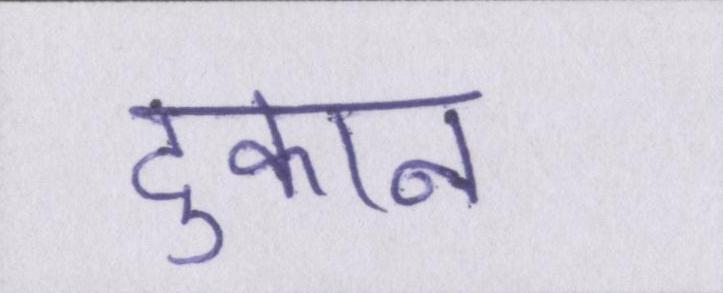 दुकान